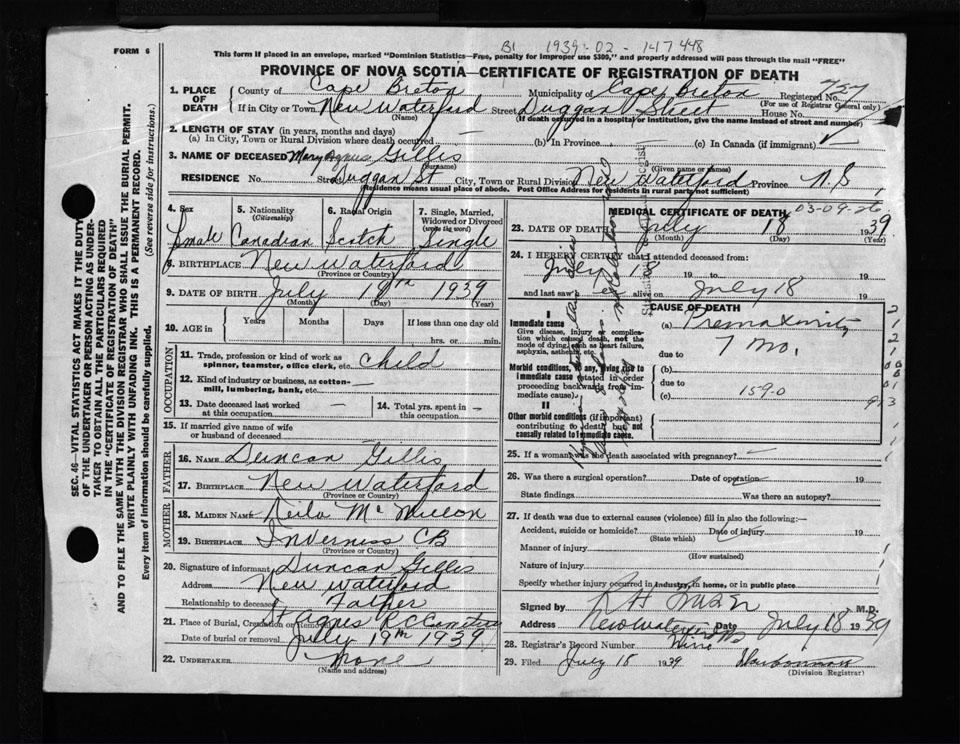 B1 1939-02-147448
FORM 6
This form if placed in an envelope, marked "Dominion Statistics—Free, penalty for improper use $300," and properly addressed will pass through the mail "FREE"
PROVINCE OF NOVA SCOTIA—CERTIFICATE OF REGISTRATION OF DEATH
1. PLACE OF DEATH
County of Cape Breton Municipality of Cape Breton Registered No. 757
(For use of Registrar General only)
If in City or Town New Waterford Street Duggan Street House No.
(Name) (If death occurred in a hospital or institution, give the name instead of street and number)
2. LENGTH OF STAY (in years, months and days)
(a) In City, Town or Rural Division where death occurred — (b) In Province (c) In Canada (if immigrant)
3. NAME OF DECEASED Mary Agnes Gillis
(Surname) (Given name or names)
RESIDENCE No. Street Duggan St City, Town or Rural Division New Waterford Province N.S
(Residence means usual place of abode. Post Office Address for residents in rural parts not sufficient)
4. Sex 5. Nationality (Citizenship) 6. Racial Origin 7. Single, Married, Widowed or Divorced (write the word)
Female Canadian Scotch Single
8. BIRTHPLACE New Waterford
(Province or Country)
9. DATE OF BIRTH July 18th 1939
(Month) (Day) (Year)
10. AGE in Years Months Days If less than one day old
hrs. or min.
OCCUPATION
11. Trade, profession or kind of work as spinner, teamster, office clerk, etc. Child
12. Kind of industry or business, as cotton-mill, lumbering, bank, etc. —
13. Date deceased last worked at this occupation — 14. Total yrs. spent in this occupation —
15. If married give name of wife or husband of deceased
FATHER
16. NAME Duncan Gillis
17. BIRTHPLACE New Waterford
(Province or Country)
MOTHER
18. MAIDEN NAME
19. BIRTHPLACE Inverness CB
(Province or Country)
20. Signature of informant Duncan Gillis
Address New Waterford
Relationship to deceased Father
21. Place of Burial, Cremation or Removal St Agnes R C Cemetery
Date of burial or removal July 19th 1939
22. UNDERTAKER None
(Name and address)
MEDICAL CERTIFICATE OF DEATH 03-09-26
23. DATE OF DEATH July 18 1939
(Month) (Day) (Year)
24. I HEREBY CERTIFY that I attended deceased from:
July 18 19 to 19
and last saw h alive on July 18 19
CAUSE OF DEATH
I
Immediate cause
Give disease, injury or complication which caused death, not the mode of dying, such as heart failure, asphyxia, asthenia, etc.
(a) Prematurity
7 Mo.
due to
Morbid conditions, if any, giving rise to immediate cause (stated in order proceeding backwards from immediate cause).
(b)
due to
(c) 159.0
II
Other morbid conditions (if important) contributing to death but not causally related to immediate cause.
25. If a woman, was the death associated with pregnancy? —
26. Was there a surgical operation? Date of operation 19
State findings Was there an autopsy?
27. If death was due to external causes (violence) fill in also the following:—
Accident, suicide or homicide? Date of injury 19
(State which)
Manner of injury
(How sustained)
Nature of injury
Specify whether injury occurred in industry, in home, or in public place
Signed by M.D.
Address New Waterford NS Date July 18 1939
28. Registrar's Record Number Nine
29. Filed July 18 1939
(Division Registrar)
SEC. 46—VITAL STATISTICS ACT MAKES IT THE DUTY
OF THE UNDERTAKER OR PERSON ACTING AS UNDERTAKER TO OBTAIN ALL THE PARTICULARS REQUIRED
IN THE "CERTIFICATE OF REGISTRATION OF DEATH"
AND TO FILE THE SAME WITH THE DIVISION REGISTRAR WHO SHALL ISSUE THE BURIAL PERMIT.
WRITE PLAINLY WITH UNFADING INK. THIS IS A PERMANENT RECORD.
Every item of information should be carefully supplied. (See reverse side for instructions.)